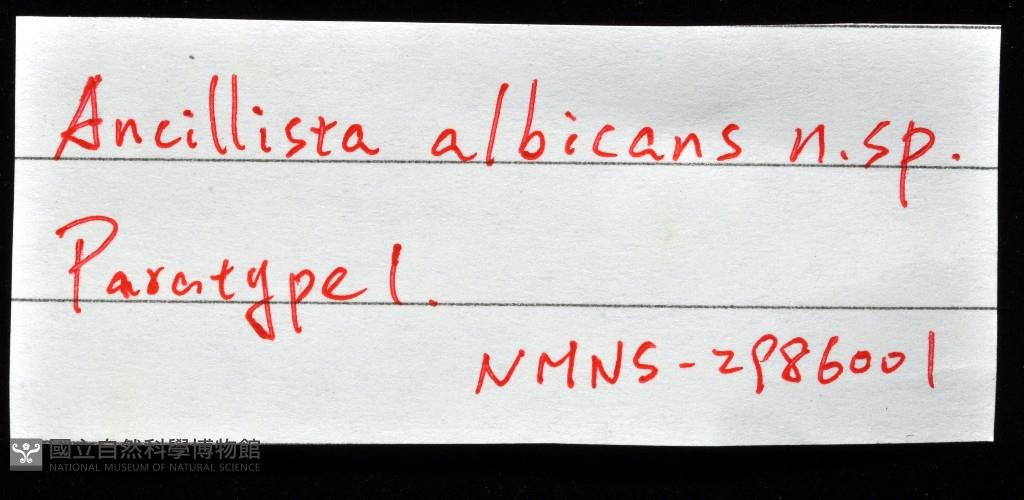 Ancillista albicans n.sp.
Paratype 1.
NMNS-2986001
國立自然科學博物館
NATIONAL MUSEUM OF NATURAL SCIENCE